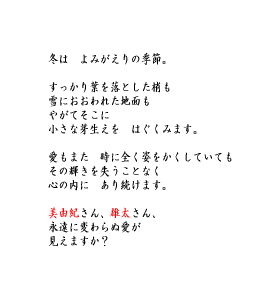 冬は　よみがえりの季節。
すっかり葉を落とした梢も
雪におおわれた地面も
やがてそこに
小さな芽生えを　はぐくみます。
愛もまた　時に全く姿をかくしていても
その輝きを失うことなく
心の内に　あり続けます。
美由紀さん、雄太さん、
永遠に変わらぬ愛が
見えますか？